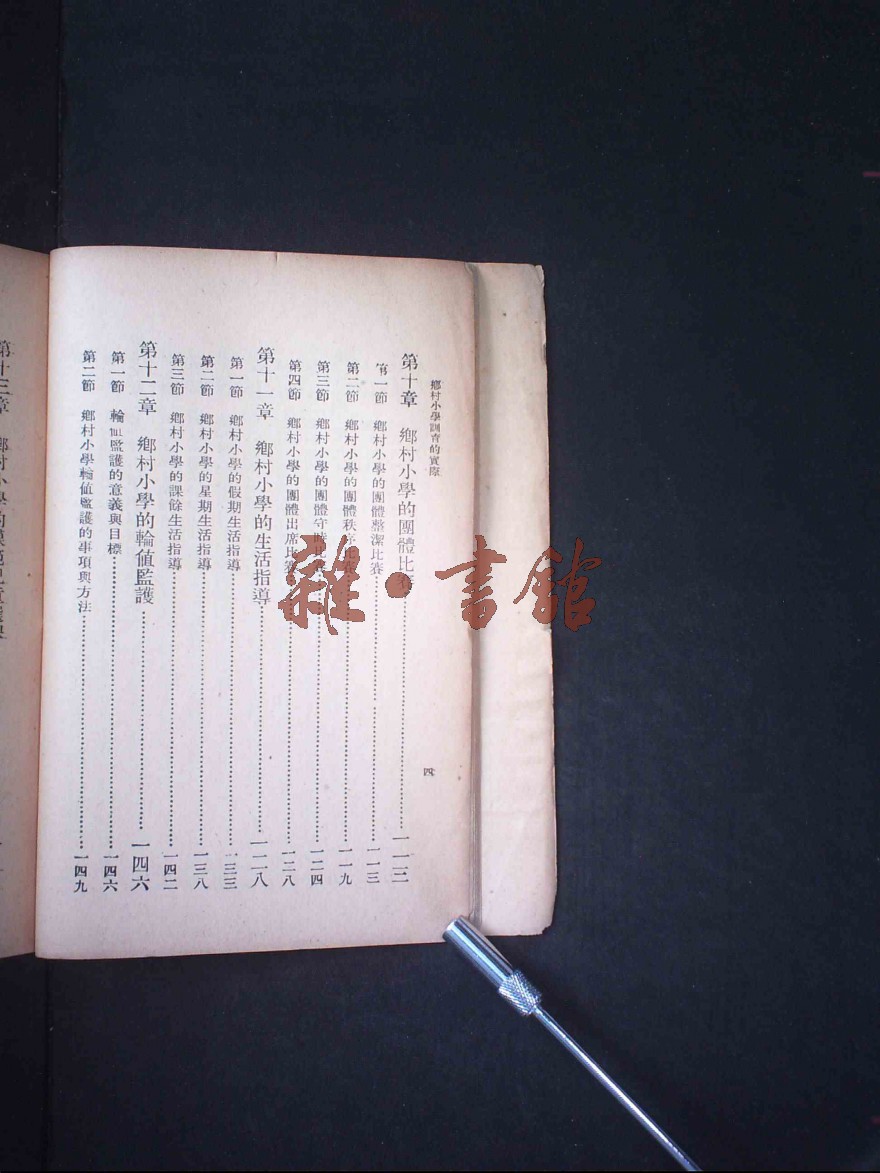 鄉村小學訓育的實際
四
第十章 鄉村小學的團體比賽 一一三
第一節 鄉村小學的團體整潔比賽 一一三
第二節 鄉村小學的團體秩序比賽 一一九
第三節 鄉村小學的團體守時比賽 一二四
第四節 鄉村小學的團體出席比賽 一二八
第十一章 鄉村小學的生活指導 一二八
第一節 鄉村小學的假期生活指導 一三三
第二節 鄉村小學的星期生活指導 一三八
第三節 鄉村小學的課餘生活指導 一四二
第十二章 鄉村小學的輪值監護 一四六
第一節 輪值監護的意義與目標 一四六
第二節 鄉村小學輪值監護的事項與方法 一四九
第十三章 鄉村小學的
雜·書館